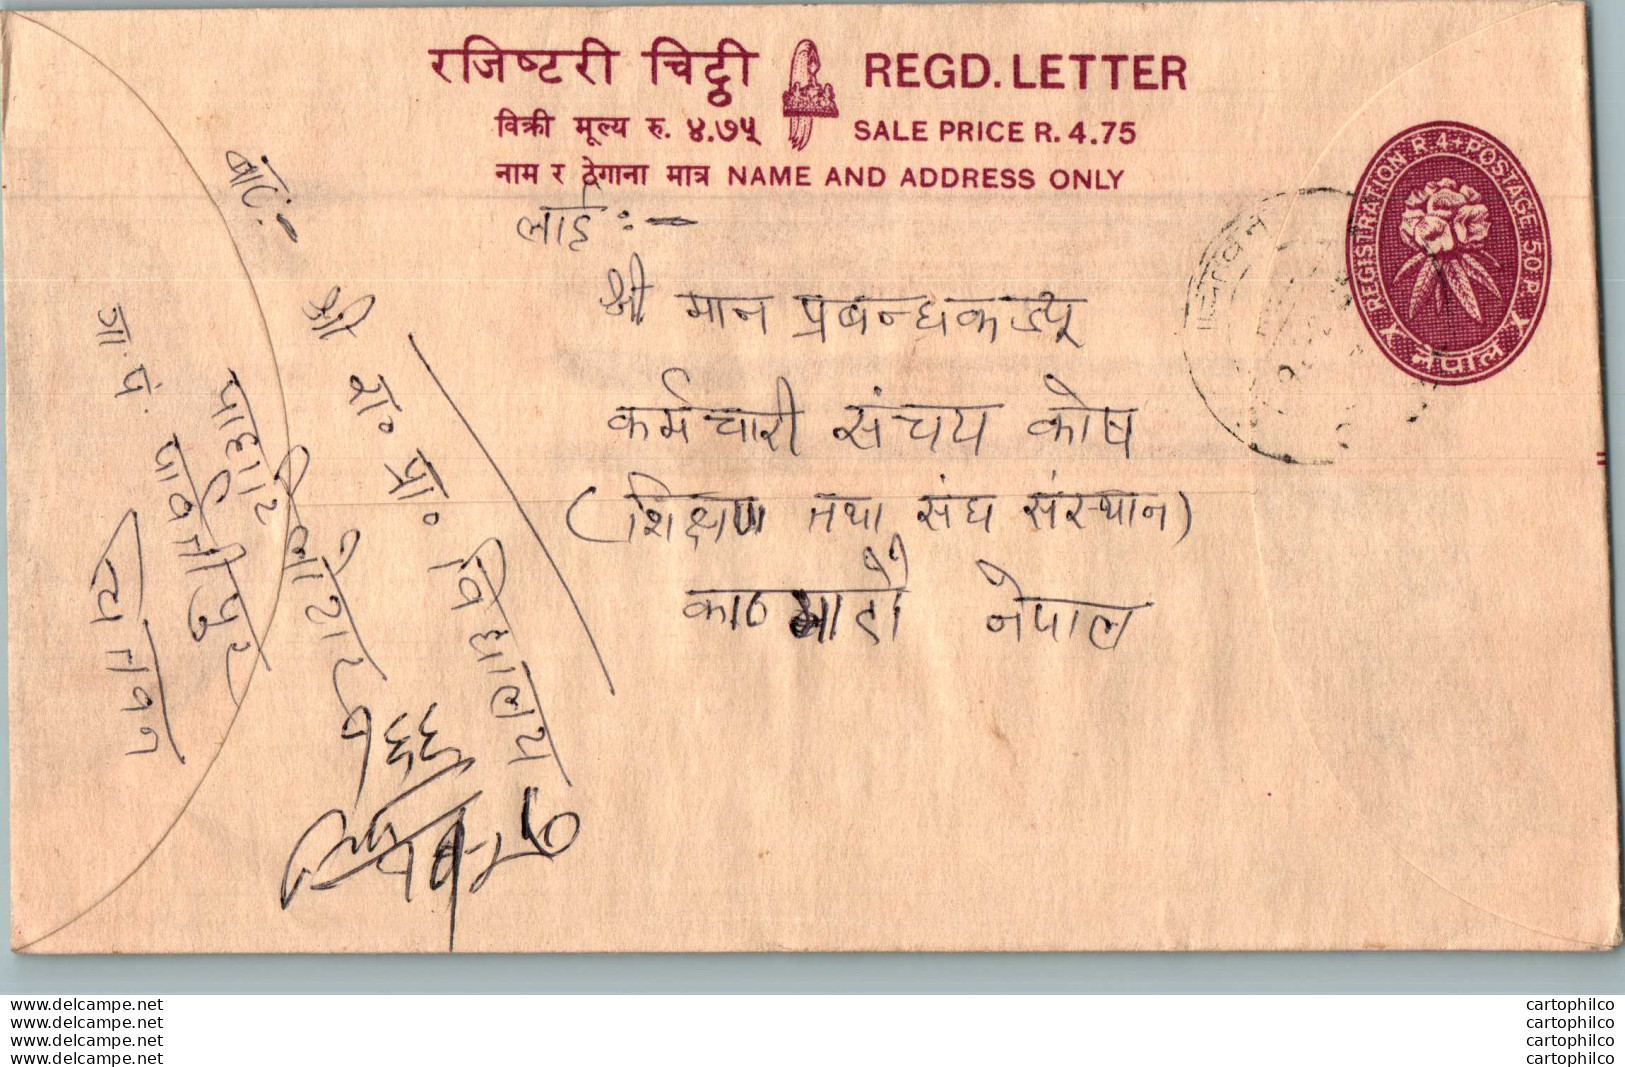 रजिष्टरी चिट्ठी REGD. LETTER
विक्री मूल्य रु. ४.७५ SALE PRICE R. 4.75
नाम र ठेगाना मात्र NAME AND ADDRESS ONLY
REGISTRATION R 4+POSTAGE 50 P.
X नेपाल X
लाई :-
श्री मान प्रबन्धकज्यू
कर्मचारी संचय कोष
(शिक्षण तथा संघ संस्थान)
काठमाडौं नेपाल
बाट:-
श्री रा० प्रा० विद्यालय
जा. पं. पार्वतीपुर
चितवन
www.delcampe.net
www.delcampe.net
www.delcampe.net
www.delcampe.net
cartophilco
cartophilco
cartophilco
cartophilco